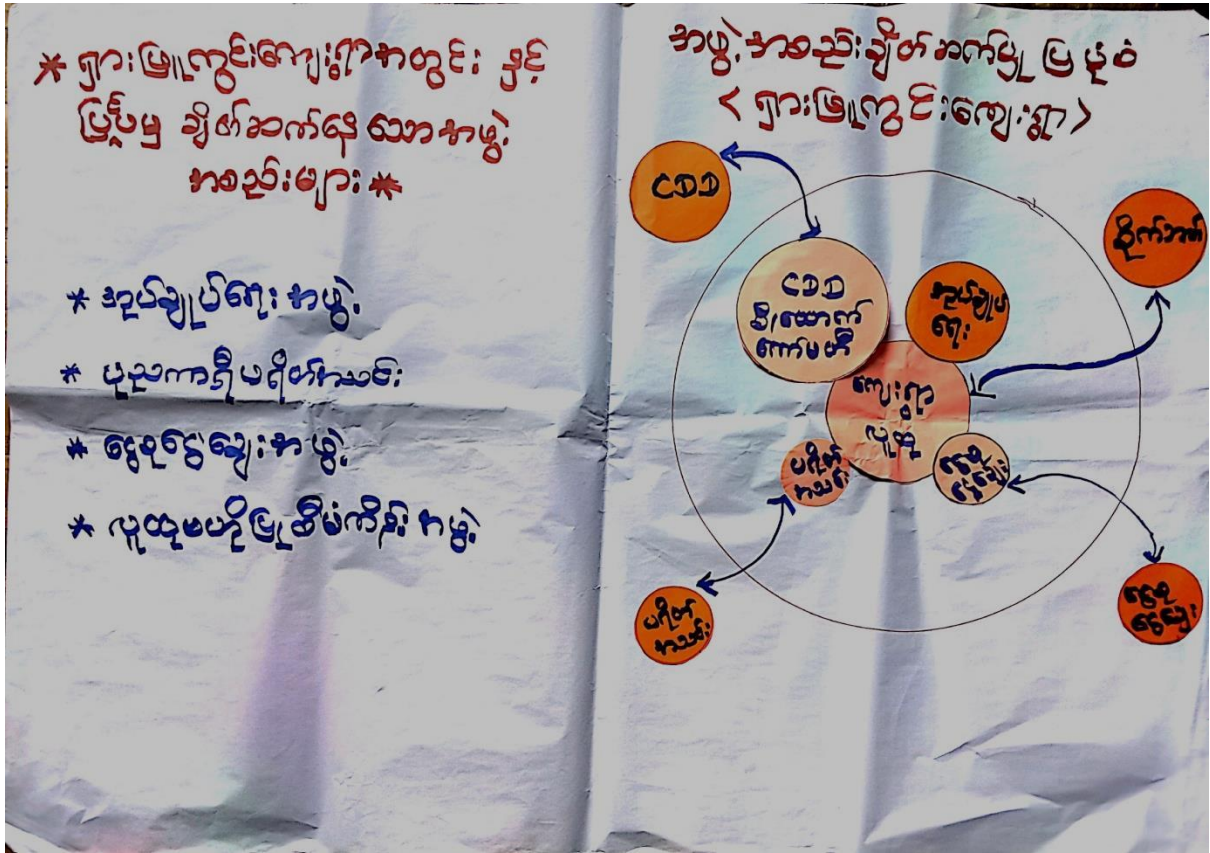 * ရှားဖြူကွင်းကျေးရွာအတွင်း နှင့်
ပြင်ပမှ ချိတ်ဆက်နေသောအဖွဲ့
အစည်းများ *
* အုပ်ချုပ်ရေးအဖွဲ့
* ပုညကာရီပရိတ်အသင်း
* ငွေစုငွေချေးအဖွဲ့
* လူထုဗဟိုပြုစီမံကိန်းအဖွဲ့
အဖွဲ့အစည်းချိတ်ဆက်မှု ပြပုံစံ
<ရှားဖြူကွင်းကျေးရွာ>
CDD
စိုက်ဘဏ်
CDD
စီ/ထောက်
ကော်မတီ
အုပ်ချုပ်
ရေး
ကျေးရွာ
လူထု
ပရိတ်
အသင်း
ငွေစု
ငွေချေး
ပရိတ်
အသင်း
ငွေစု
ငွေချေး